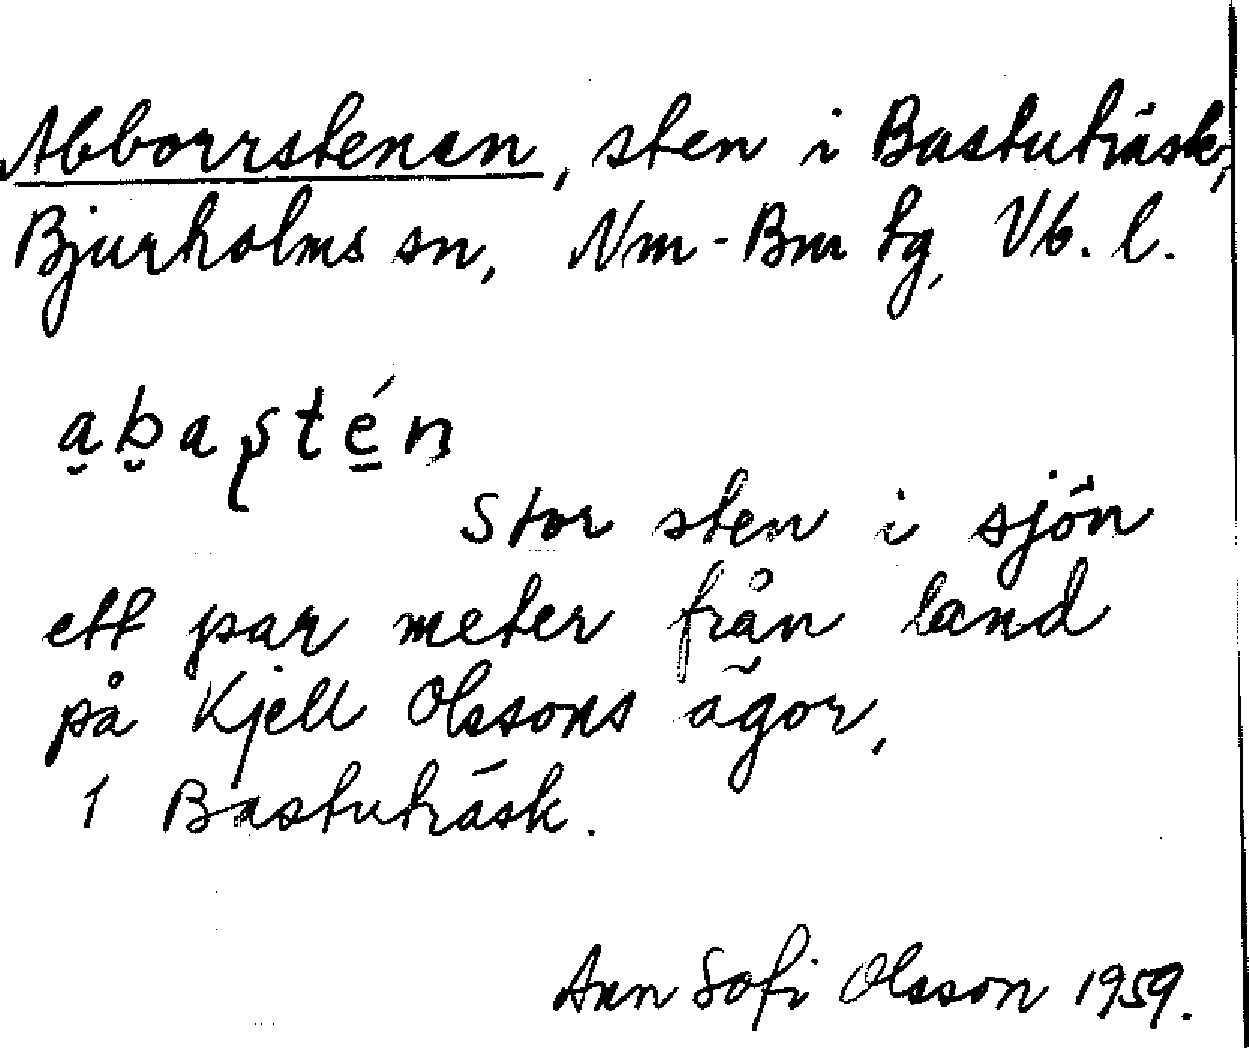 Abborrstenen, sten i Bastuträsk,
Bjurholms sn, Nm-Bm tg, Vb. l.
a̮b̮aʂtė̱́n
Stor sten i sjön
ett par meter från land
på Kjell Olssons ägor,
1 Bastuträsk.
Ann Sofi Olsson 1959.